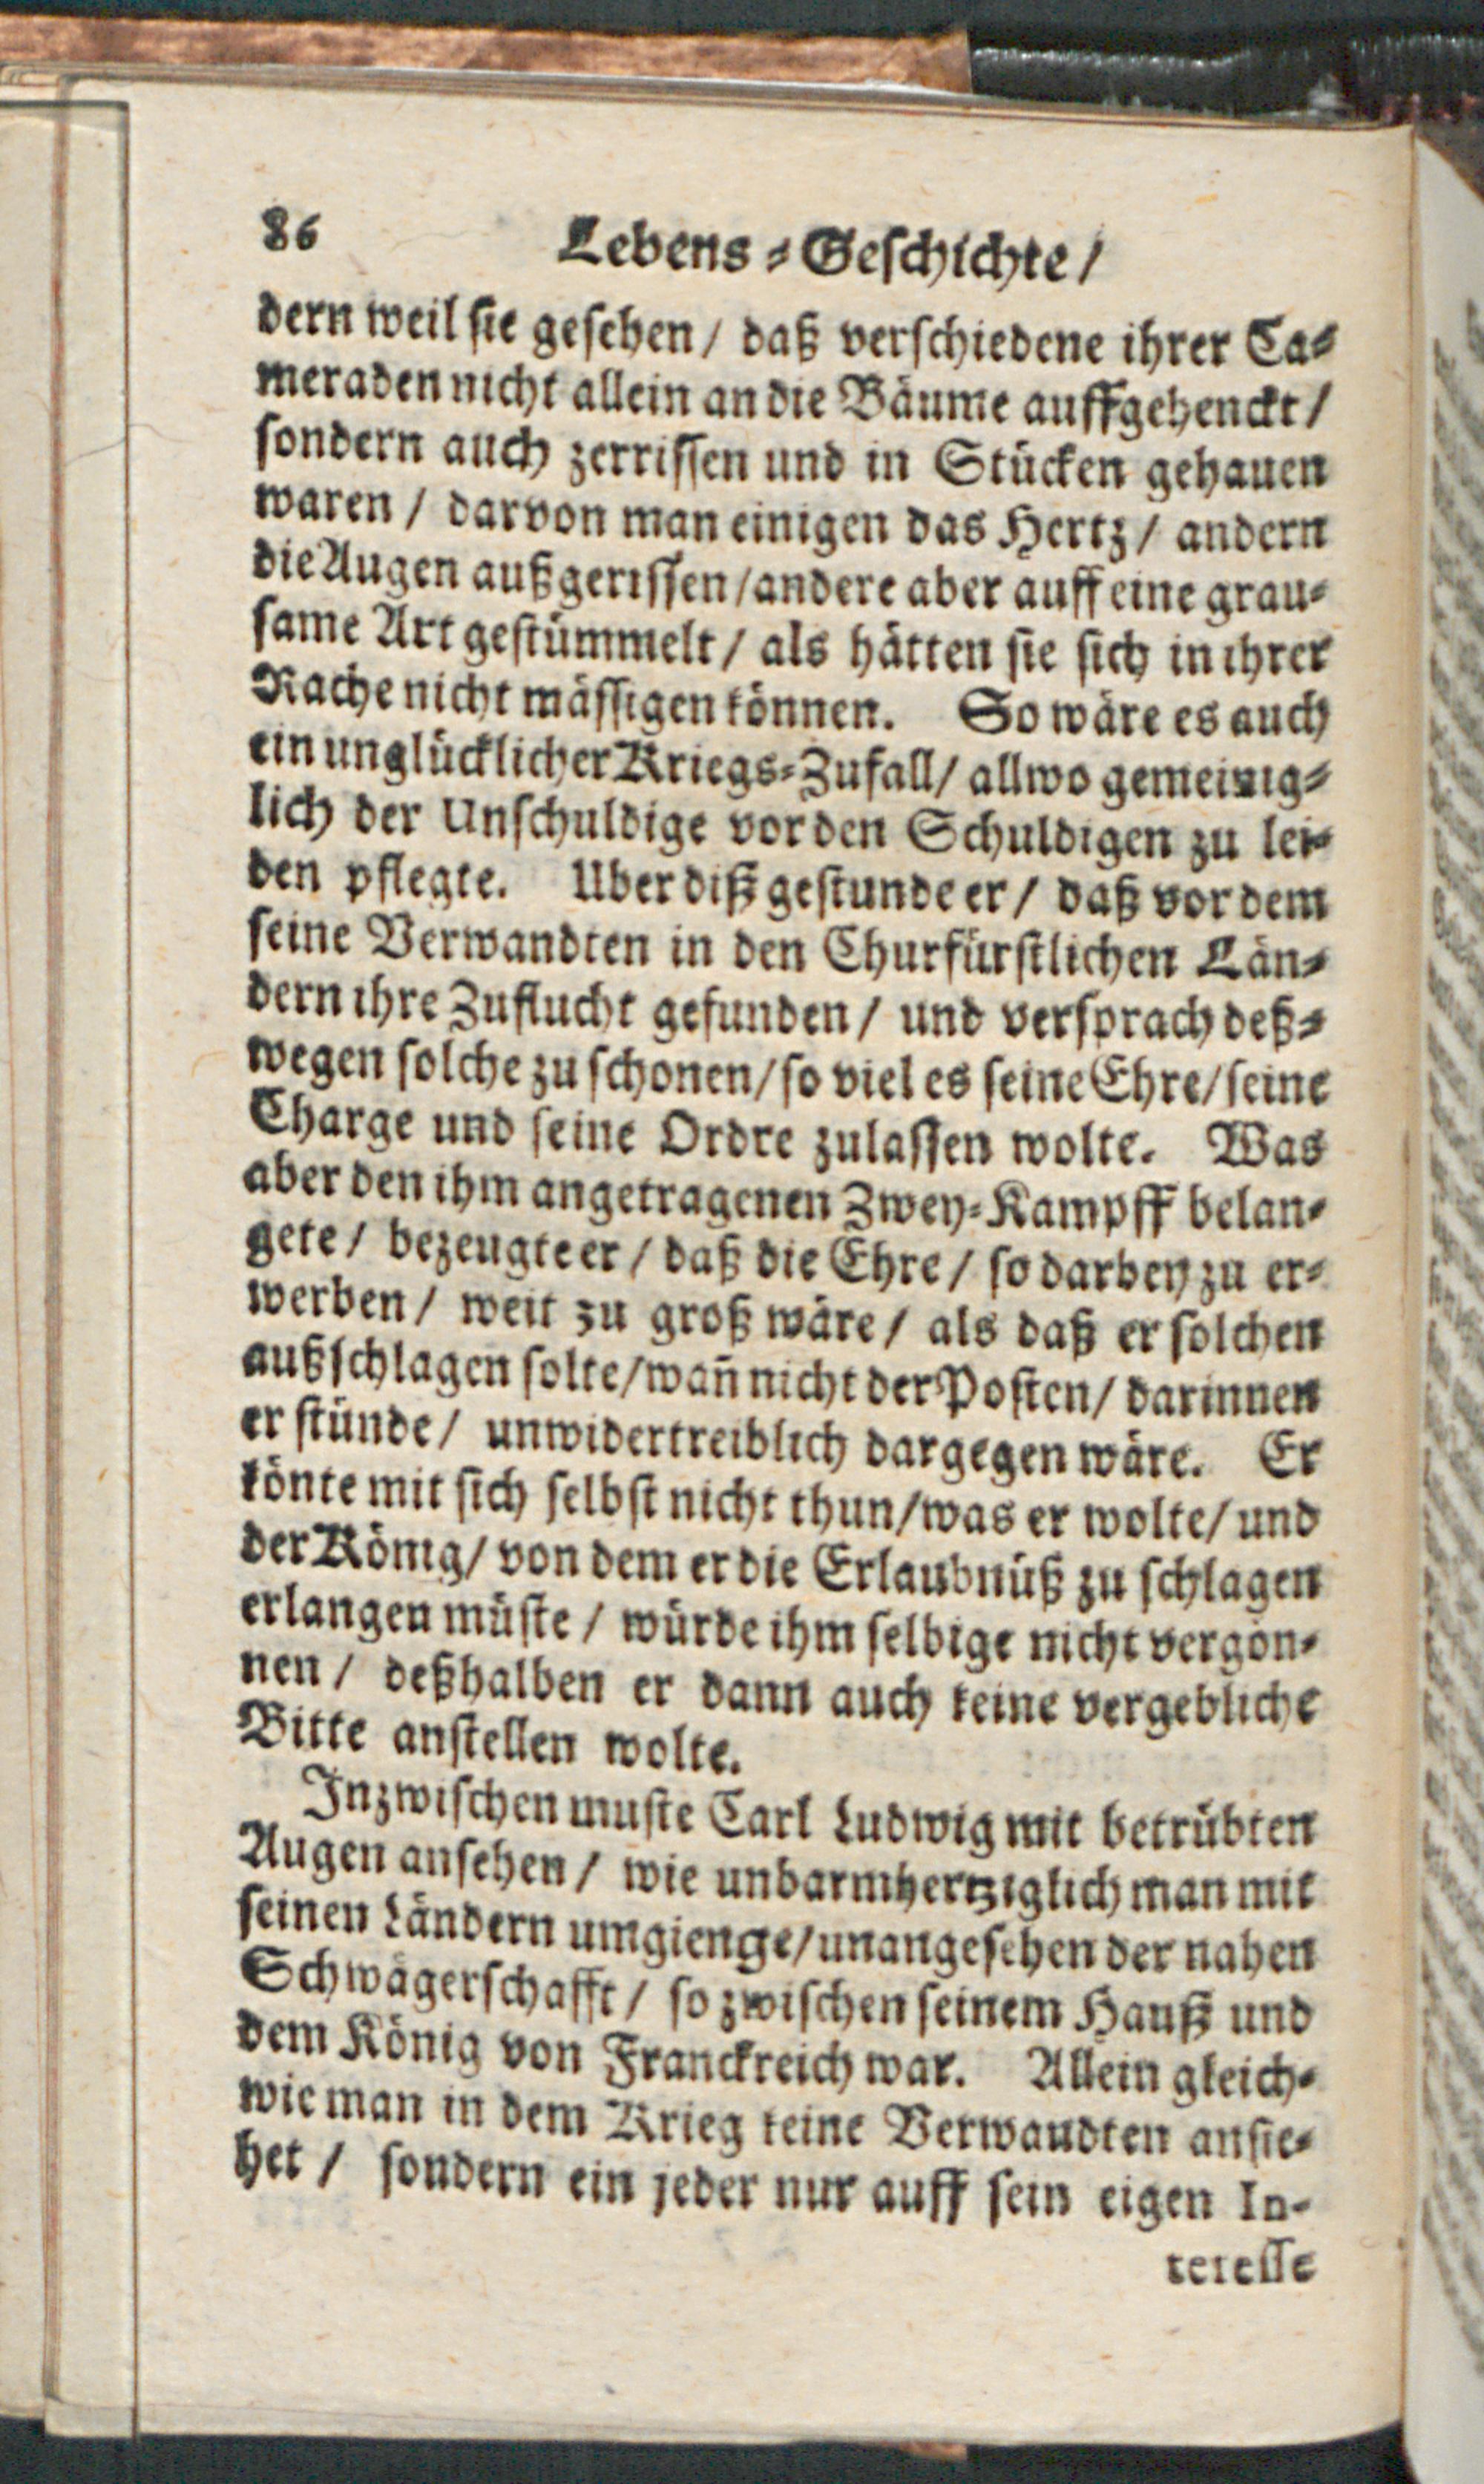 86 Lebens-Geschichte/
dern weil sie gesehen / daß verschiedene ihrer Ca-
meraden nicht allein an die Bäume auffgehenckt /
sondern auch zerrissen und in Stücken gehauen
waren / darvon man einigen das Hertz / andern
die Augen außgerissen / andere aber auff eine grau-
same Art gestümmelt / als hätten sie sich in ihrer
Rache nicht mässigen können. So wäre es auch
ein unglücklicher Kriegs-Zufall / allwo gemeinig-
lich der Unschuldige vor den Schuldigen zu lei-
den pflegte. Uber diß gestunde er / daß vor dem
seine Verwandten in den Churfürstlichen Län-
dern ihre Zuflucht gefunden / und versprach deß-
wegen solche zu schonen / so viel es seine Ehre / seine
Charge und seine Ordre zulassen wolte. Was
aber den ihm angetragenen Zwey-Kampff belan-
gete / bezeugte er / daß die Ehre / so darbey zu er-
werben / weit zu groß wäre / als daß er solchen
außschlagen solte / wañ nicht der Posten / darinnen
er stünde / unwidertreiblich dargegen wäre. Er
könte mit sich selbst nicht thun / was er wolte / und
der König / von dem er die Erlaubnüß zu schlagen
erlangen müste / würde ihm selbige nicht vergön-
nen / deßhalben er dann auch keine vergebliche
Bitte anstellen wolte.
Inzwischen muste Carl Ludwig mit betrübten
Augen ansehen / wie unbarmhertziglich man mit
seinen Ländern umgienge / unangesehen der nahen
Schwägerschafft / so zwischen seinem Hauß und
dem König von Franckreich war. Allein gleich-
wie man in dem Krieg keine Verwandten ansie-
het / sondern ein jeder nur auff sein eigen In-
teresse